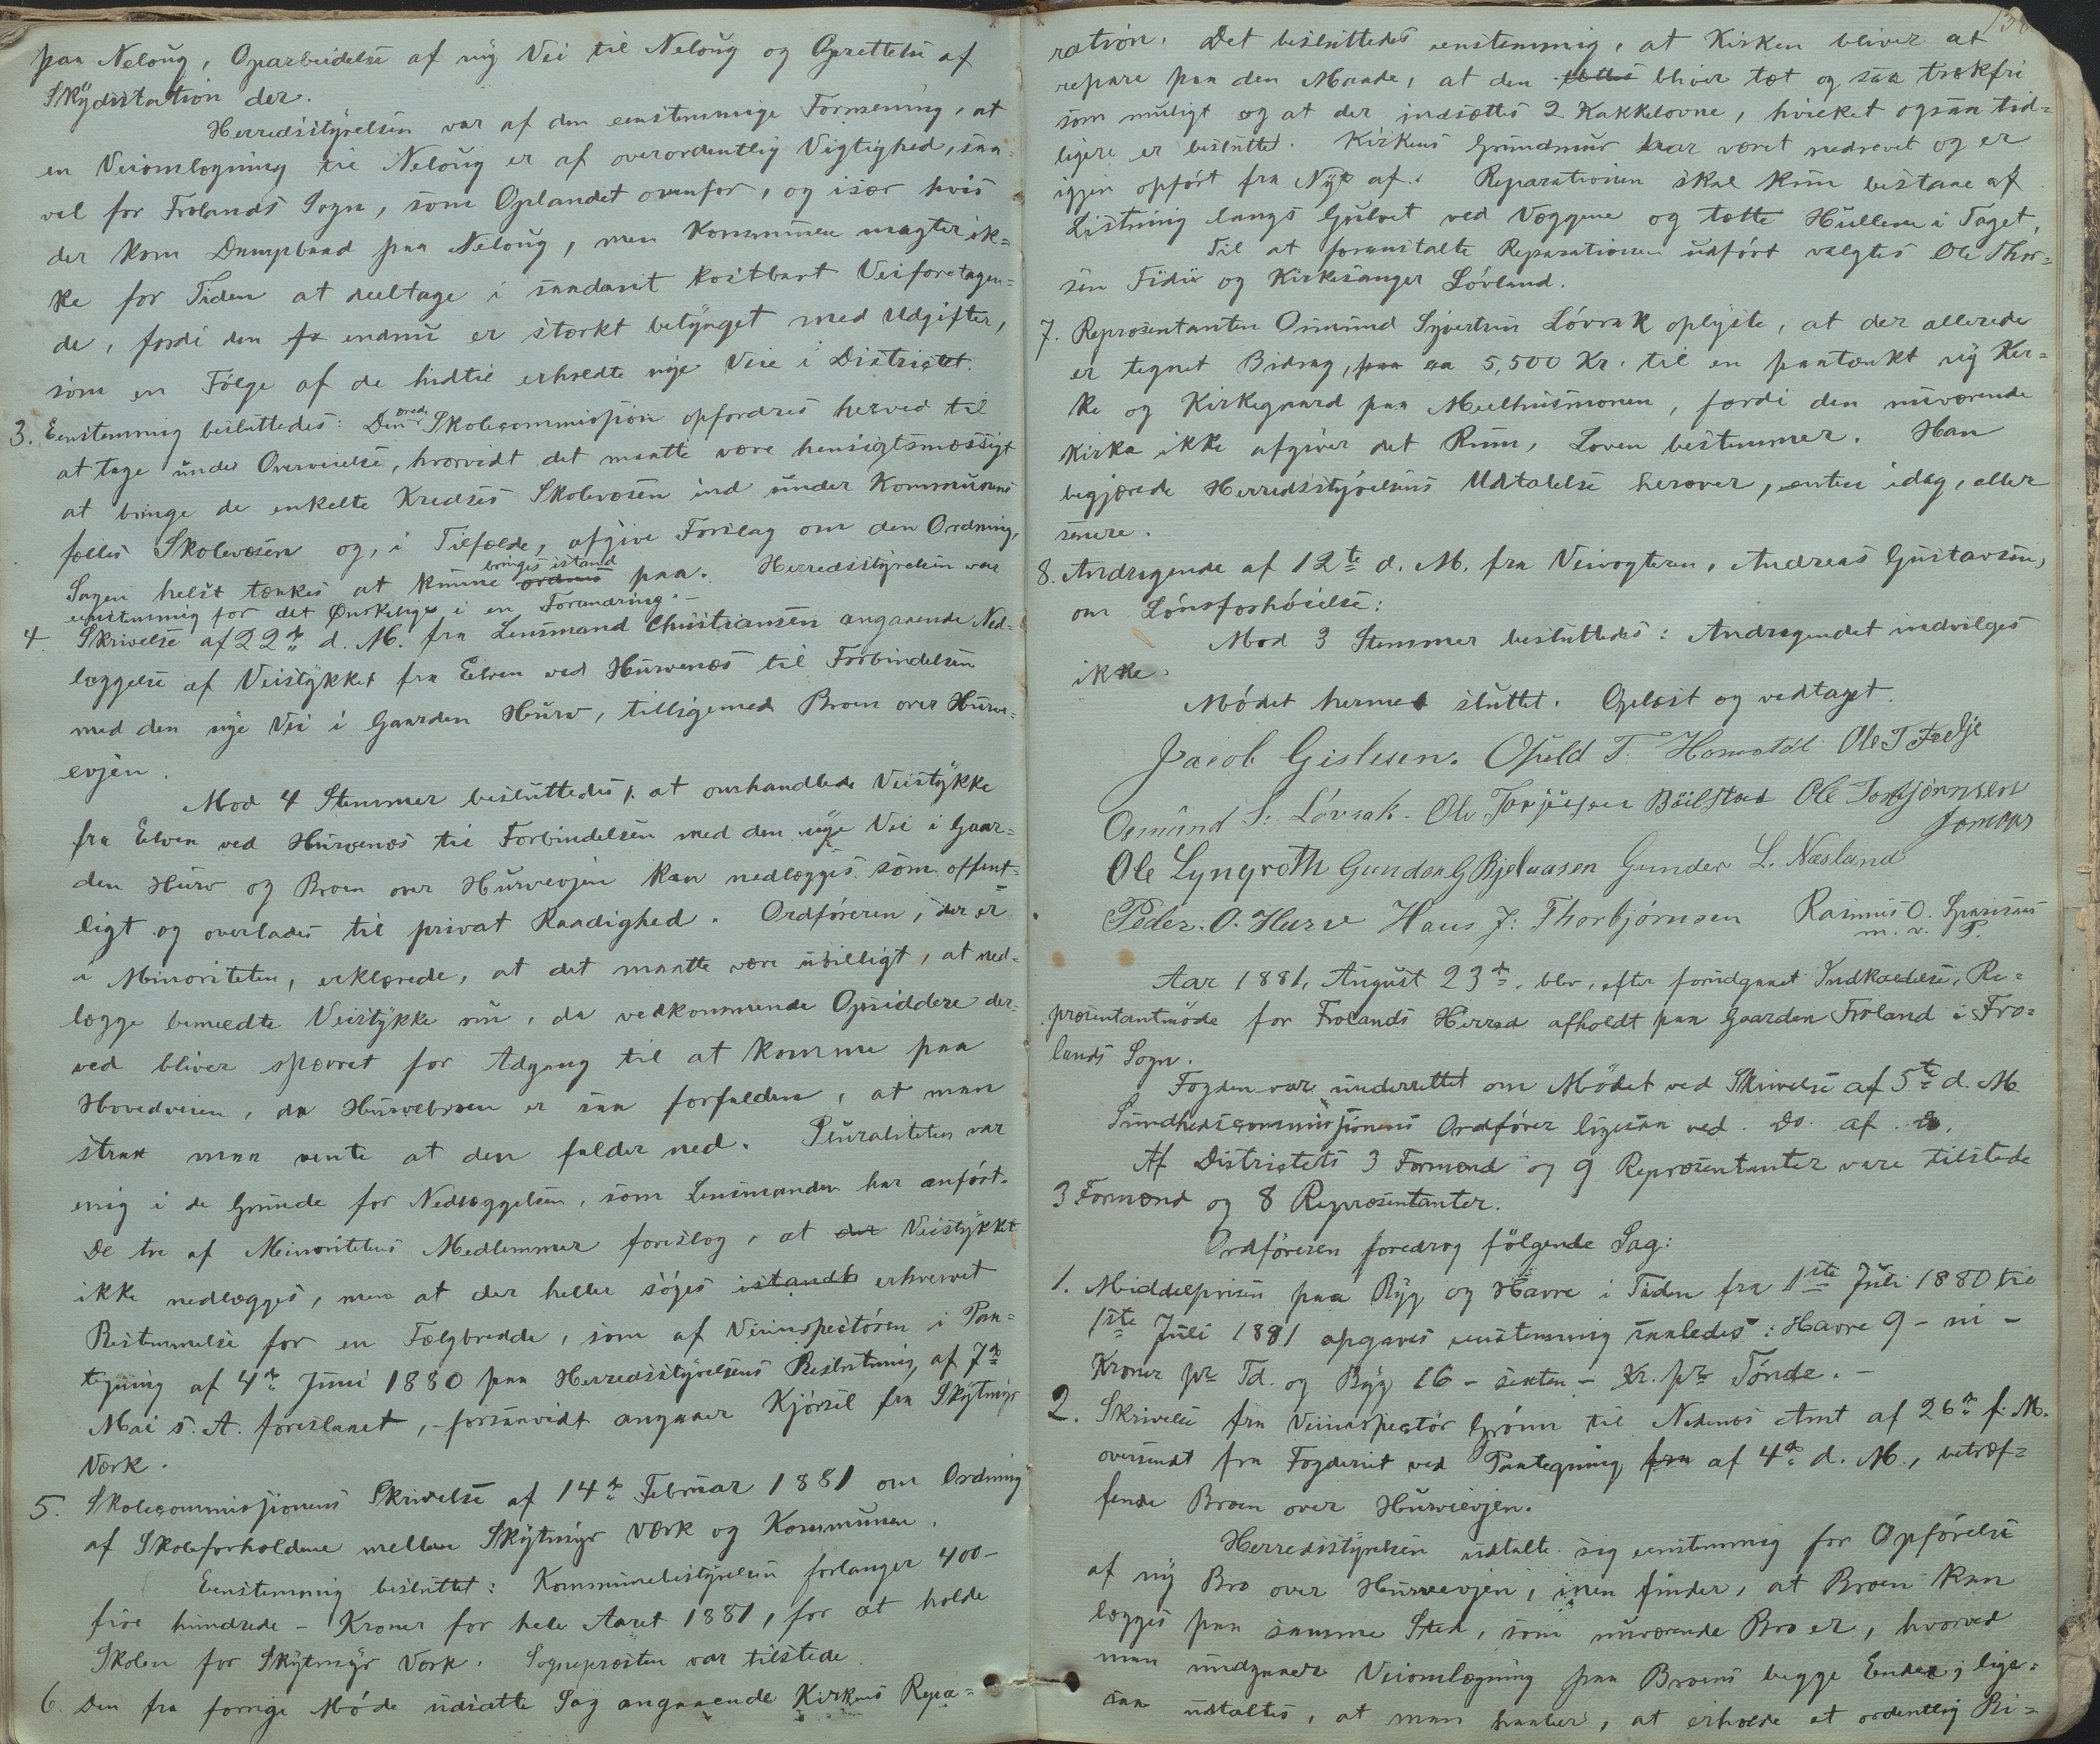 paa Neloug, Oparbeidelse af ny Vei til Neloug og Oprettelse af
Skydsstation der.
Herredsstyrelsen var af den eenstemmige Formening, at
en Veiomlægning til Neloug er af overordentlig Vigtighed, saa-
vel for Frolands Sogn, som Oplandet ovenfor, og især hvis
der kom Dampbaad paa Neloug, men Kommunen magter ik-
ke for Tiden at deeltage i saadant kostbart Veiforetagen-
de, fordi den endnu er stærkt betynget med Udgifter,
som en Følge af de hidtil erholdte nye Veie i Districtet.
3. Eenstemmig besluttedes: Den Skolecommission opfordres herved til
at tage under Overveielse, hvorvidt det maatte være hensigtsmæssigt
at bringe de enkelte Kredses Skolevæsen ind under Kommunens
fælles Skolevæsen og, i Tilfælde, afgive Forslag om den Ordning,
Sagen helst tænkes at kunne bringes istand paa. Herredsstyrelsen var
eenstemmig for det Ønskelige i en Forandring.-
4. Skrivelse af 22de d. M. fra Lensmand Christiansen angaaende Ned-
læggelse af Veistykket fra Elven ved Hurvenæs til Forbindelsen
med den nye Vei i Gaarden Hurv, tilligemed Broen over Hurve-
evjen.
Mod 4 Stemmer besluttedes, at omhandlede Veistykke
fra Elven ved Hurvenæs til Forbindelsen med den nye Vei i Gaar-
den Hurv og Broen over Hurvevjen kan nedlægges som offent-
ligt og overlades til privat Raadighed. Ordføreren, der er
i Minoriteten, erklærede, at det maatte være ubilligt, at ned-
lægge bemeldte Veistykke nu, da vedkommende Opsiddere der-
ved bliver spærret for Adgang til at komme paa
Hovedveien, da Hurvebroen er saa forfalden, at man
strax maa vente at den falder ned. Pluraliteten var
enig i de Grunde for Nedlæggelsen, som Lensmanden har anført.
De tre af Minoritetens Medlemmer foreslog, at der Veistykket
ikke nedlægges, men at der heller søges istandb erhvervet
Bestemmelse for en Fælgbredde, som af Veiinspectøren i Paa-
tegning af 4de Juni 1880 paa Herredsstyrelsens Beslutning af 7de
Mai s. A. foreslaaet, -forsaavidt angaaer Kjørsel fra Skytmyr
Værk.
5. Skolecommissionens Skrivelse af 14de Februar 1881 om Ordning
af Skoleforholdene mellem Skytmyr Værk og Kommunen.
Eenstemmig besluttet: Kommunebestyrelsen forlanger 400-
fire hundrede - Kroner for hele Aaret 1881, for at holde
Skolen for Skytmyr Værk. Sognepræsten var tilstede.
6. Den fra forrige Møde udsatte Sag angaaende Kirkens Repa-
ration. Det besluttedes eenstemmig, at Kirken bliver at
repare paa den Maade, at den bliver tæt og saa trækfri
som muligt og at der indsættes 2 Kakkelovne, hvilket ogsaa tid-
ligere er besluttet. Kirkens Grundmur har været nedrevet og er
igjen opført fra Nyt af. Reparationen skal kun bestaae af
Listning langs Gulvet ved Væggene og tætte Hullerne i Taget.
Til at foranstalte Reparationen udført valgtes Ole Thor-
sen Fidie og Kirkesanger Løvland.
7. Repræsentanten Osmund Syvertsen Løvrak oplyste, at der allerede
er tegnet Bidrag, paa ca 5,500 Kr. til en paatænkt ny Kir-
ke og Kirkegaard paa Meelhusmonen, fordi den nuværende
Kirke ikke afgiver det Rum, Loven bestemmer. Han
begjærede Herredsstyrelsens Udtalelse herover, enten idag, eller
senere.
8. Andragende af 12te d. M. fra Veivogteren, Andreas Gustavsen,
om Lønsforhøielse:
Mod 3 Stemmer besluttedes: Andragendet indvilges
ikke.
Mødet hermed sluttet. Oplæst og vedtaget.
Jacob Gislesen. Opseld T. Homstøl Ole T Fedje
Osmund S. Løvrak. Ole Torjusen Bøilstad Ole Torbjørnsen
Jomaas
Ole Lyngroth Gunder G Bjelaasen Gunder L. Næsland
Peder. O. Hurv Hans J. Thorbjørnsen Rasmus O.
m. v. P.
Aar 1881, August 23de, blev, efter forudgaaet Indkaldelse, Re-
præsentantmøde for Frolands Herred afholdt paa Gaarden Froland i Fro-
lands Sogn.
Fogden var underrettet om Mødet ved Skrivelse af 5te d. M
Sundhedscommissionens Ordfører ligesaa ved Do. af Do.
Af Districtets 3 Formænd og 9 Repræsentanter vare tilstede
3 Formænd og 8 Repræsentanter.
Ordføreren foredrog følgende Sag:
1. Middelprisen paa Byg og Havre i Tiden fra 1ste Juli 1880 til
1ste Juli 1881 opgaves eenstemmig saaledes: Havre 9 - ni -
Kroner pr Td. og Byg 16 - sexten - Kr. pr Tønde. -
2. Skrivelse fra Veiinspectør Grønn til Nedenæs Amt af 26de f. M.
oversendt fra Fogderiet ved Paategning fra af 4de d. M., betræf-
fende Broen over Hurvevjen.
Herredsstyrelsen udtalte sig eenstemmig for Opførelse
af ny Bro over Hurveevjen, men finder, at Broen kan
lægges paa samme Sted, som nuværende Bro er, hvorved
man undgaaer Veiomlægning paa Broens begge Ender; lige-
saa udtaltes, at man haaber, at erholde et ordentlig Bi-